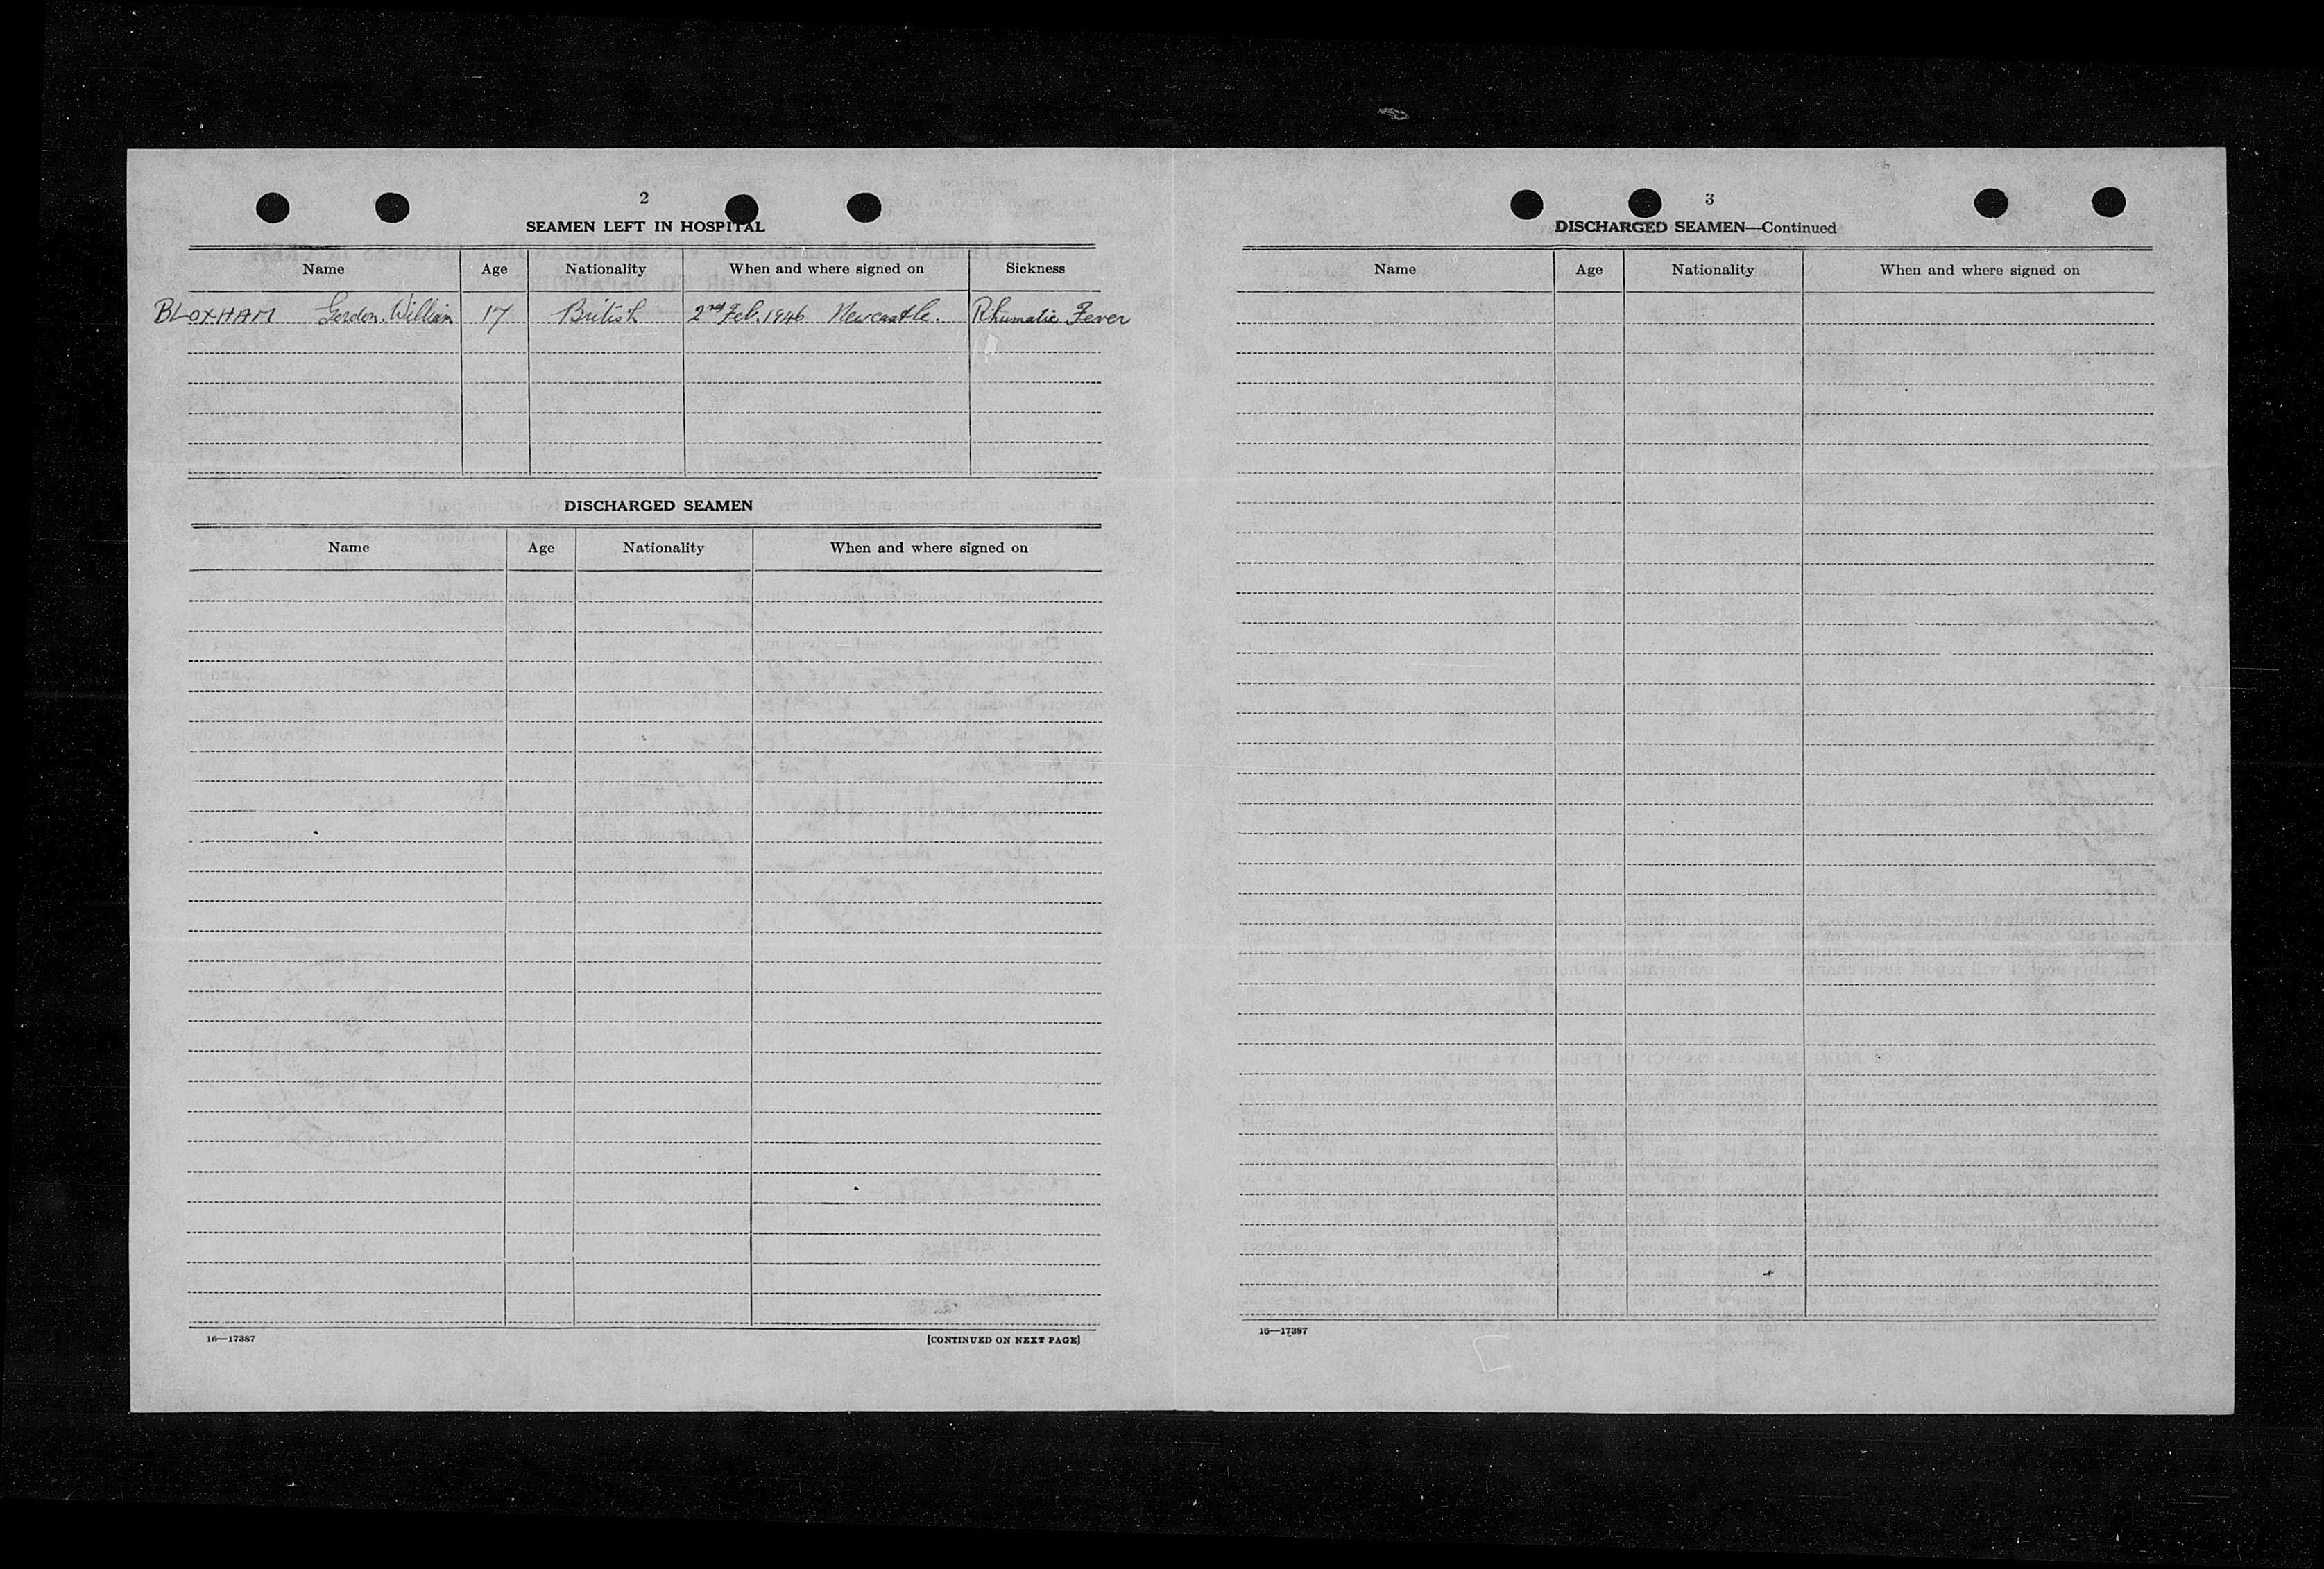 2
SEAMEN LEFT IN HOSPITAL
Name Age Nationality When and where signed on Sickness
BLOXHAM Gordon. William 17 British 2nd Feb. 1946 Newcastle. Rhumatic Fever
DISCHARGED SEAMEN
Name Age Nationality When and where signed on
16—17387 [CONTINUED ON NEXT PAGE]
3
DISCHARGED SEAMEN—Continued
Name Age Nationality When and where signed on
16—17387